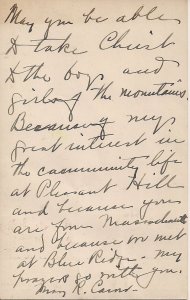 May you be able
to take Christ
to the boys and
girls of the mountains.
Because of my
great interest in
the community life
at Pleasant Hill
and because you
are from Massachusetts
and because we met
at Blue Ridge. My
prayers go with you.
Mary R.